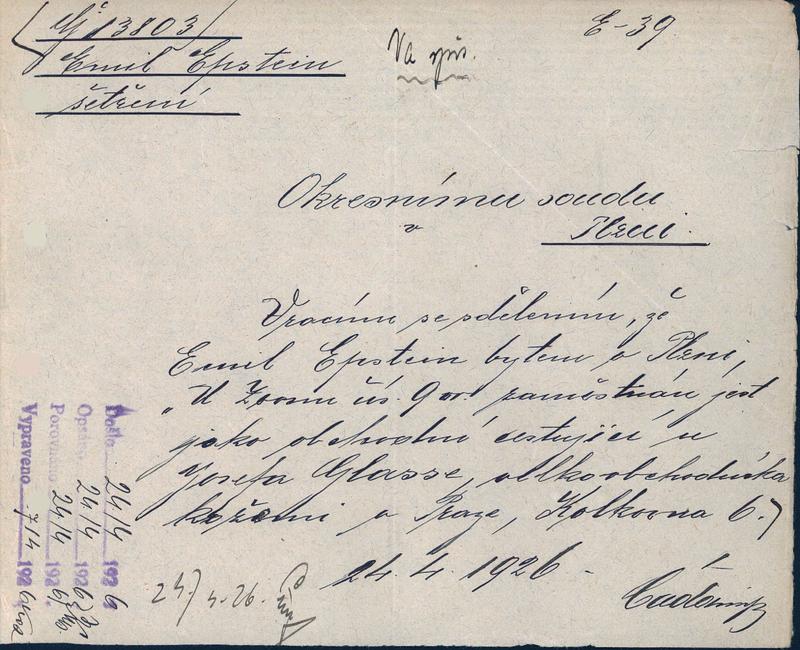 Čj 13803
E-39
Emil Epstein
Na spis.
šetření
Okresnímu soudu
v Plzni.
Vracím se sdělením, že
Emil Epstein bytem v Plzni,
„U Zvonu čís. 9
zaměstnán jest
jako obchodní cestující u
Josefa Glasse, velkoobchodníka
kožemi v Praze, Kolkovna 6.
24. 4. 1926
24/4.26.
Došlo 24/4 1926
Opsáno 24/4 1926
Porovnáno 24/4 192
Vypraveno 7/4 192